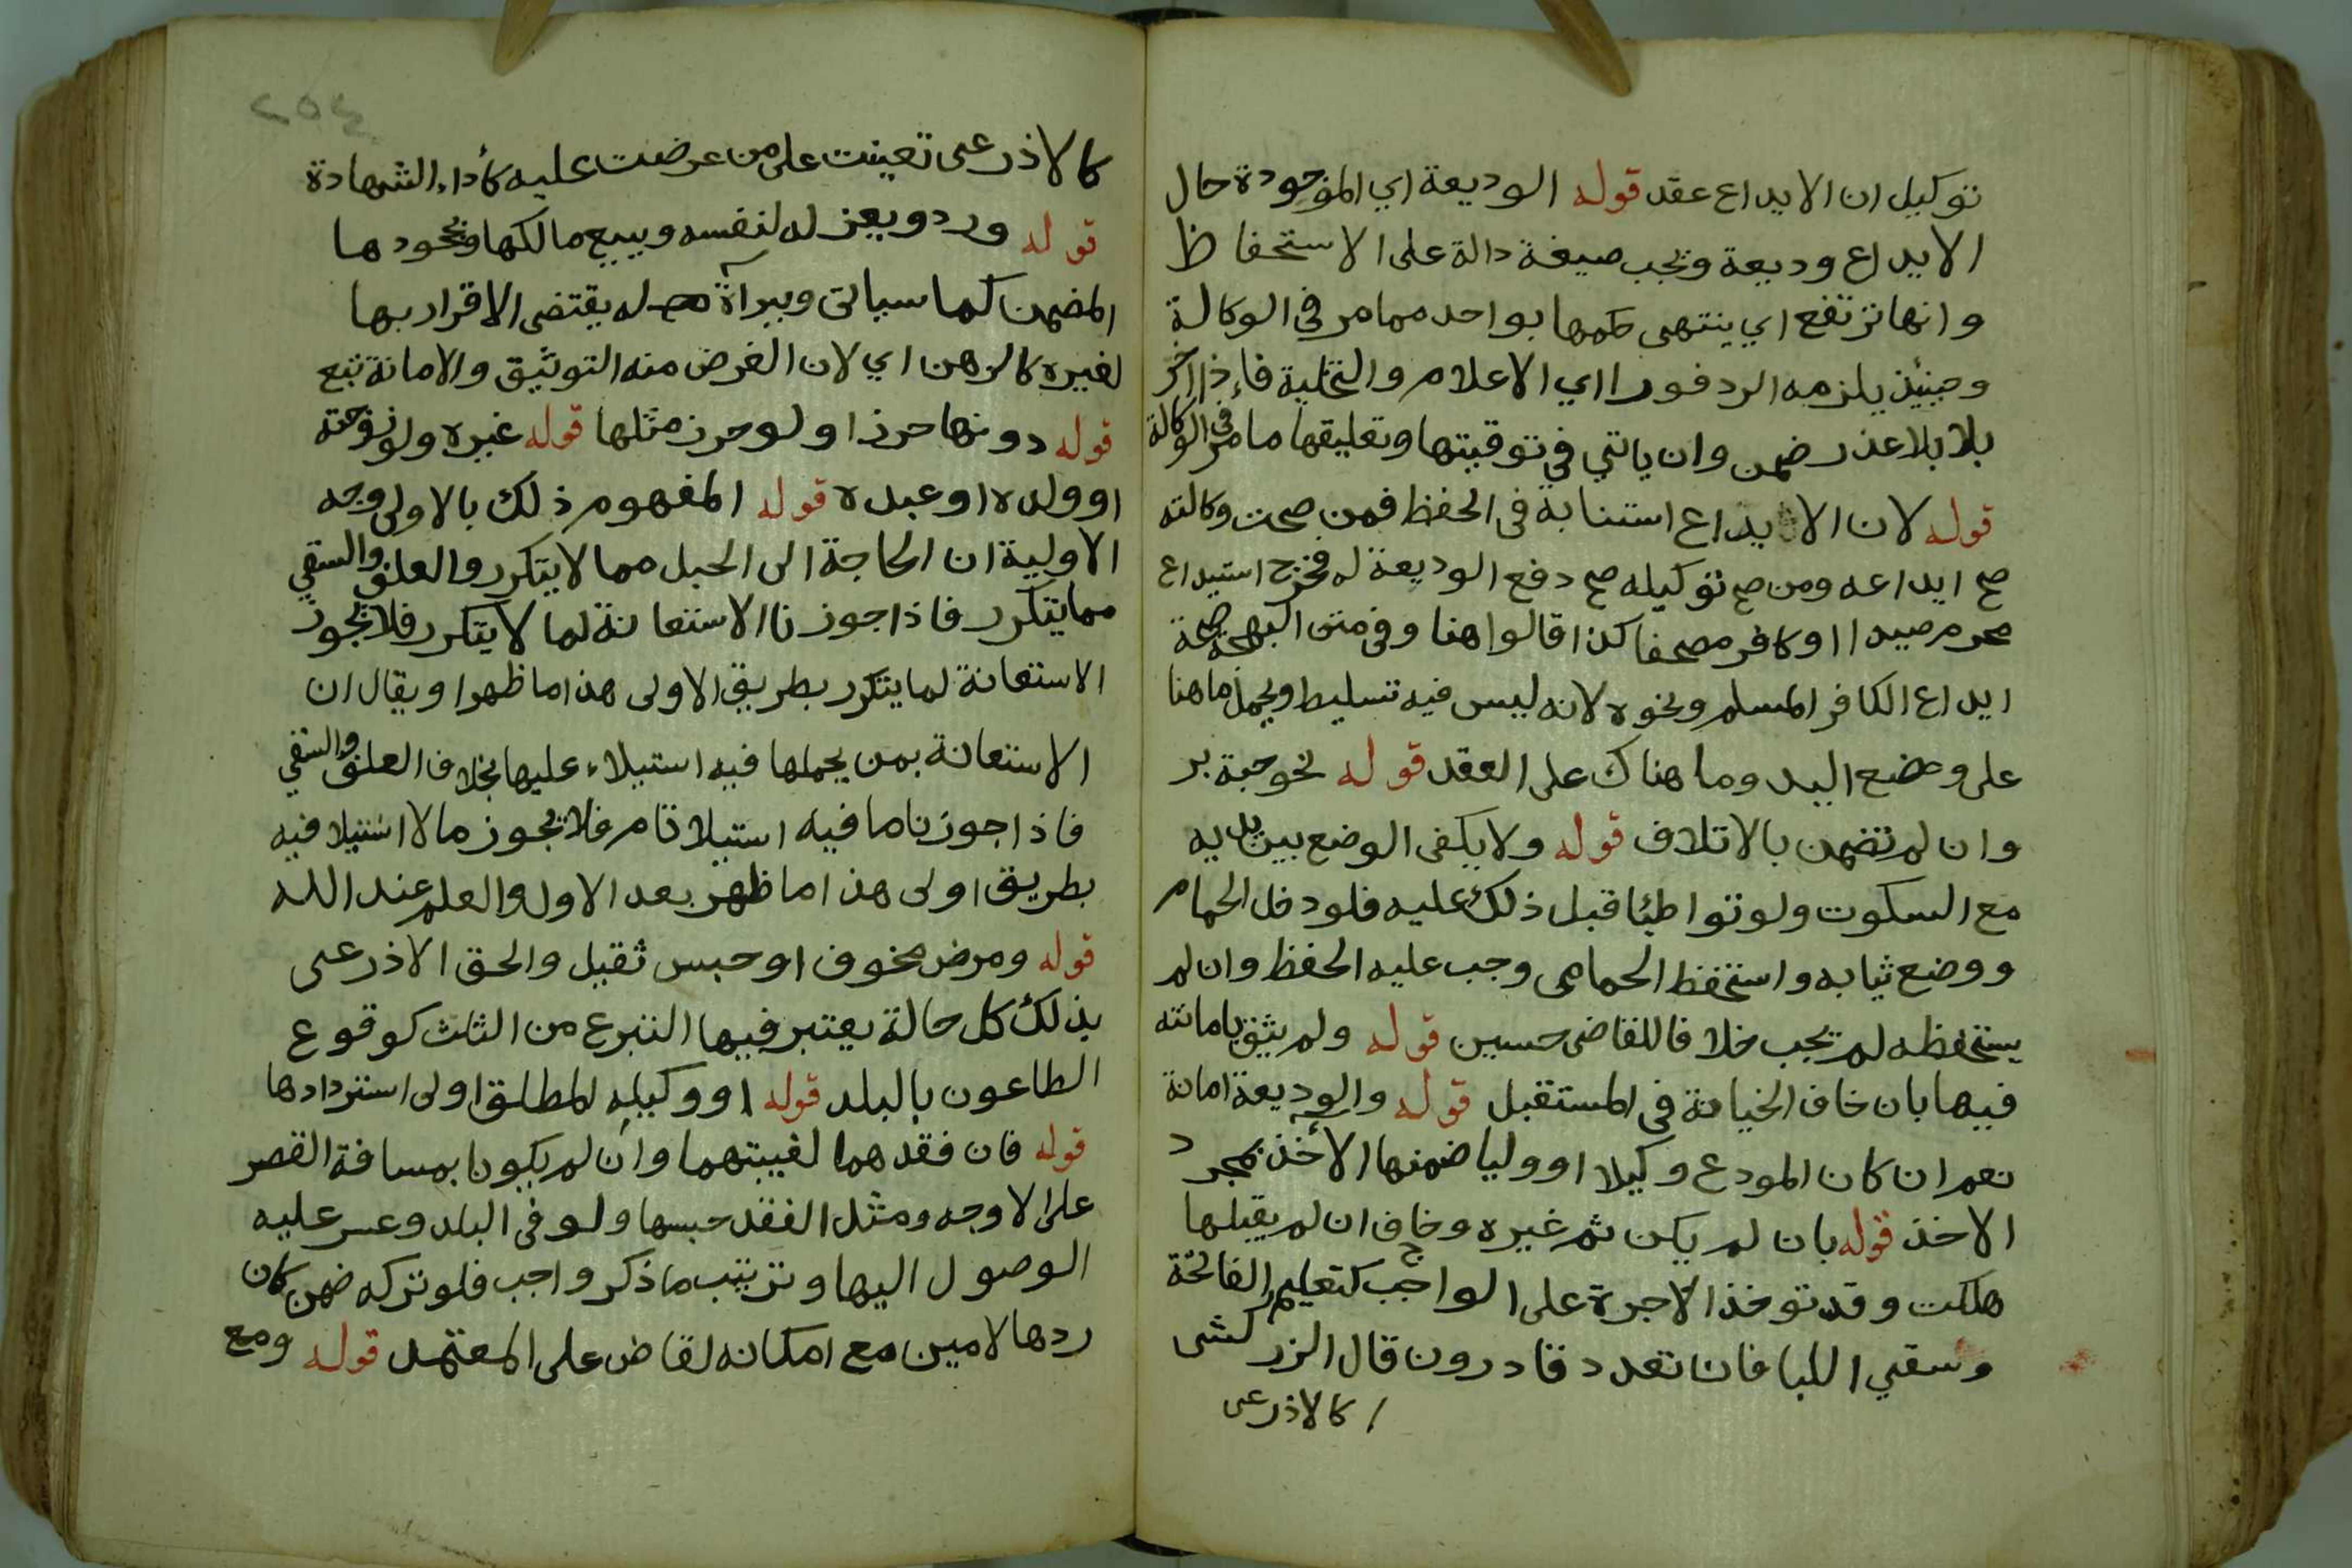 توكيل ان الايداع عقد قوله الوديعة اي الموجودة حال
الايداع وديعة ويجب صيغة دالة على الاستحفاظ
وانها ترتفع اي ينتهى حكمها بواحد مما مر في الوكالة
وحينئذ يلزمه الرد فورا اي الاعلام والتخلية فاذا اخر
بلا بلا عذر ضمن وان ياتي في توقيتها وتعليقها ما مر في الوكالة
قوله لان الايداع استنابة في الحفظ فمن صحت وكالته
صح ايداعه ومن صح توكيله صح دفع الوديعة له فخرج استيداع
محرم صيدا او كافر مصحفا كذا قالوا هنا وفي متن البهجة صحة
ايداع الكافر المسلم ونحوه لانه ليس فيه تسليط ويحمل ما هنا
على وضع اليد وما هناك على العقد قوله نحو حبة بر
وان لم تضمن بالاتلاف قوله ولا يكفى الوضع بين يديه
مع السكوت ولو تواطئا قبل ذلك عليه فلو دخل الحمام
ووضع ثيابه واستحفظ الحمامى وجب عليه الحفظ وان لم
يستحفظه لم يجب خلافا للقاضى حسين قوله ولم يثق بامانته
فيها بان خاف الخيانة في المستقبل قوله والوديعة امانة
نعم ان كان المودع وكيلا او وليا ضمنها الآخذ بمجرد
الاخذ قوله بان لم يكن ثم غيره وخاف ان لم يقبلها
هلكت وقد توخذ الاجرة على الواجب كتعليم الفاتحة
وسقي اللبا فان تعدد قادرون قال الزركشى
كالاذرعى
٢٥٤
كالاذرعى تعينت على من عرضت عليه كأداء الشهادة
قوله ورد ويعزله لنفسه وببيع مالكها وبجحودها
المضمن كما سياتى وببراءة له يقتضى الاقرار بها
لغيره كالرهن اي لان الغرض منه التوثيق والامانة تتبع
قوله دونها حرزا ولو حرز مثلها قوله غيره ولو زوجته
او ولده او عبده قوله المفهوم ذلك بالاولى وجه
الاولية ان الحاجة الى الحبل مما لا يتكرر والعلف والسقي
مما يتكرر فاذا جوزنا الاستعانة لما لا يتكرر فلا تجوز
الاستعانة لما يتكرر بطريق الاولى هذا ما ظهر او يقال ان
الاستعانة بمن يحملها فيه استيلاء عليها بخلاف العلف والسقي
فاذا جوزنا ما فيه استيلا تام فلا يجوز مالا استيلا فيه
بطريق اولى هذا ما ظهر بعد الاول والعلم عند الله
قوله ومرض مخوف او حبس ثقيل والحق الاذرعى
بذلك كل حالة يعتبر فيها التبرع من الثلث كوقوع
الطاعون بالبلد قوله او وكيله المطلق اولى استردادها
قوله فان فقدهما لغيبتهما وان لم يكونا بمسافة القصر
على الاوجه ومثل الفقد حبسها ولو في البلد وعسر عليه
الوصول اليها وترتيب ما ذكر واجب فلو تركه ضمن كان
ردها لامين مع امكانه لقاض على المعتمد قوله ومع